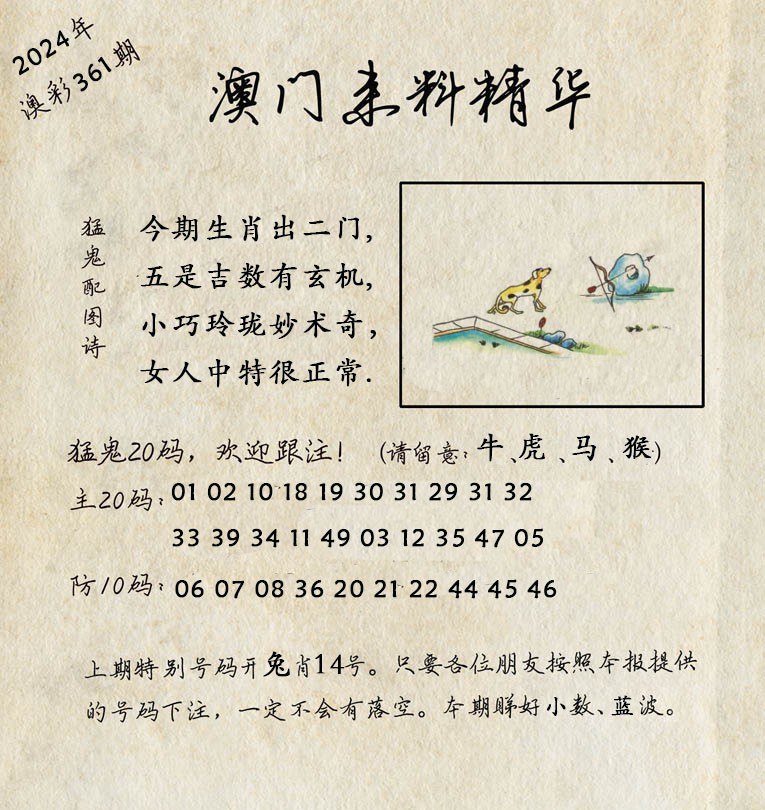 2024年
澳彩361期
澳门来料精华
猛鬼配图诗
今期生肖出二门,
五是吉数有玄机,
小巧玲珑妙术奇,
女人中特很正常.
猛鬼20码，欢迎跟注！（请留意：牛、虎、马、猴）
主20码：01 02 10 18 19 30 31 29 31 32
33 39 34 11 49 03 12 35 47 05
防10码：06 07 08 36 20 21 22 44 45 46
上期特别号码开兔肖14号。只要各位朋友按照本报提供
的号码下注，一定不会有落空。本期睇好小数、蓝波。